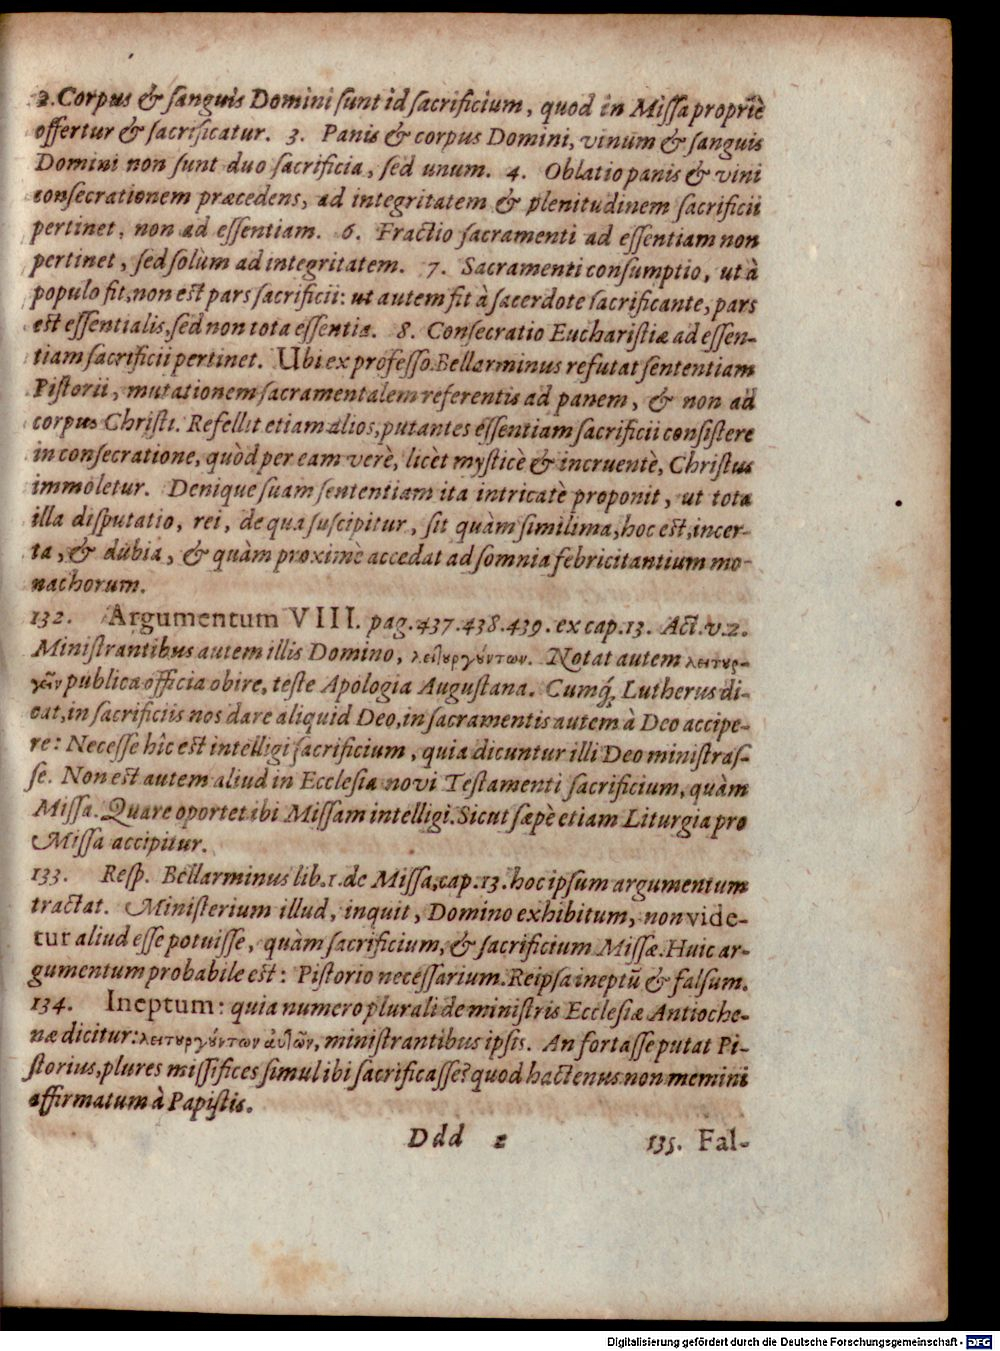 2. Corpus & sanguis Domini sunt id sacrificium, quod in Missa propriè
offertur & sacrificatur. 3. Panis & corpus Domini, vinum & sanguis
Domini non sunt duo sacrificia, sed unum. 4. Oblatio panis & vini
consecrationem præcedens, ad integritatem & plenitudinem sacrificii
pertinet, non ad essentiam. 6. Fractio sacramenti ad essentiam non
pertinet, sed solùm ad integritatem. 7. Sacramenti consumptio, ut à
populo fit, non est pars sacrificii: ut autem fit à sacerdote sacrificante, pars
est essentialis, sed non tota essentia. 8. Consecratio Eucharistiæ ad essen-
tiam sacrificii pertinet. Ubi ex professo Bellarminus refutat sententiam
Pistorii, mutationem sacramentalem referentis ad panem, & non ad
corpus Christi. Refellit etiam alios, putantes essentiam sacrificii consistere
in consecratione, quòd per eam verè, licèt mysticè & incruentè, Christus
immoletur. Denique suam sententiam ita intricatè proponit, ut tota
illa disputatio, rei, de qua suscipitur, sit quàm simillima, hoc est, incer-
ta, & dubia, & quàm proximè accedat ad somnia febricitantium mo-
nachorum.
132. Argumentum VIII. pag. 437. 438. 439. ex cap. 13. Act. v. 2.
Ministrantibus autem illis Domino, λειτουργούντων. Notat autem λειτουρ-
γεῖν publica officia obire, teste Apologia Augustana. Cumq́; Lutherus di-
cat, in sacrificiis nos dare aliquid Deo, in sacramentis autem à Deo accipe-
re: Necesse hîc est intelligi sacrificium, quia dicuntur illi Deo ministras-
se. Non est autem aliud in Ecclesia novi Testamenti sacrificium, quàm
Missa. Quare oportet ibi Missam intelligi. Sicut sæpè etiam Liturgia pro
Missa accipitur.
133. Resp. Bellarminus lib. 1. de Missa, cap. 13. hoc ipsum argumentum
tractat. Ministerium illud, inquit, Domino exhibitum, non vide-
tur aliud esse potuisse, quàm sacrificium, & sacrificium Missæ. Huic ar-
gumentum probabile est: Pistorio necessarium. Reipsa ineptũ & falsum.
134. Ineptum: quia numero plurali de ministris Ecclesiæ Antioche-
næ dicitur: λειτουργούντων αὐτῶν, ministrantibus ipsis. An fortasse putat Pi-
storius, plures missifices simul ibi sacrificasse? quod hactenus non memini
affirmatum à Papistis.
Ddd 2 135. Fal-
Digitalisierung gefördert durch die Deutsche Forschungsgemeinschaft - DFG